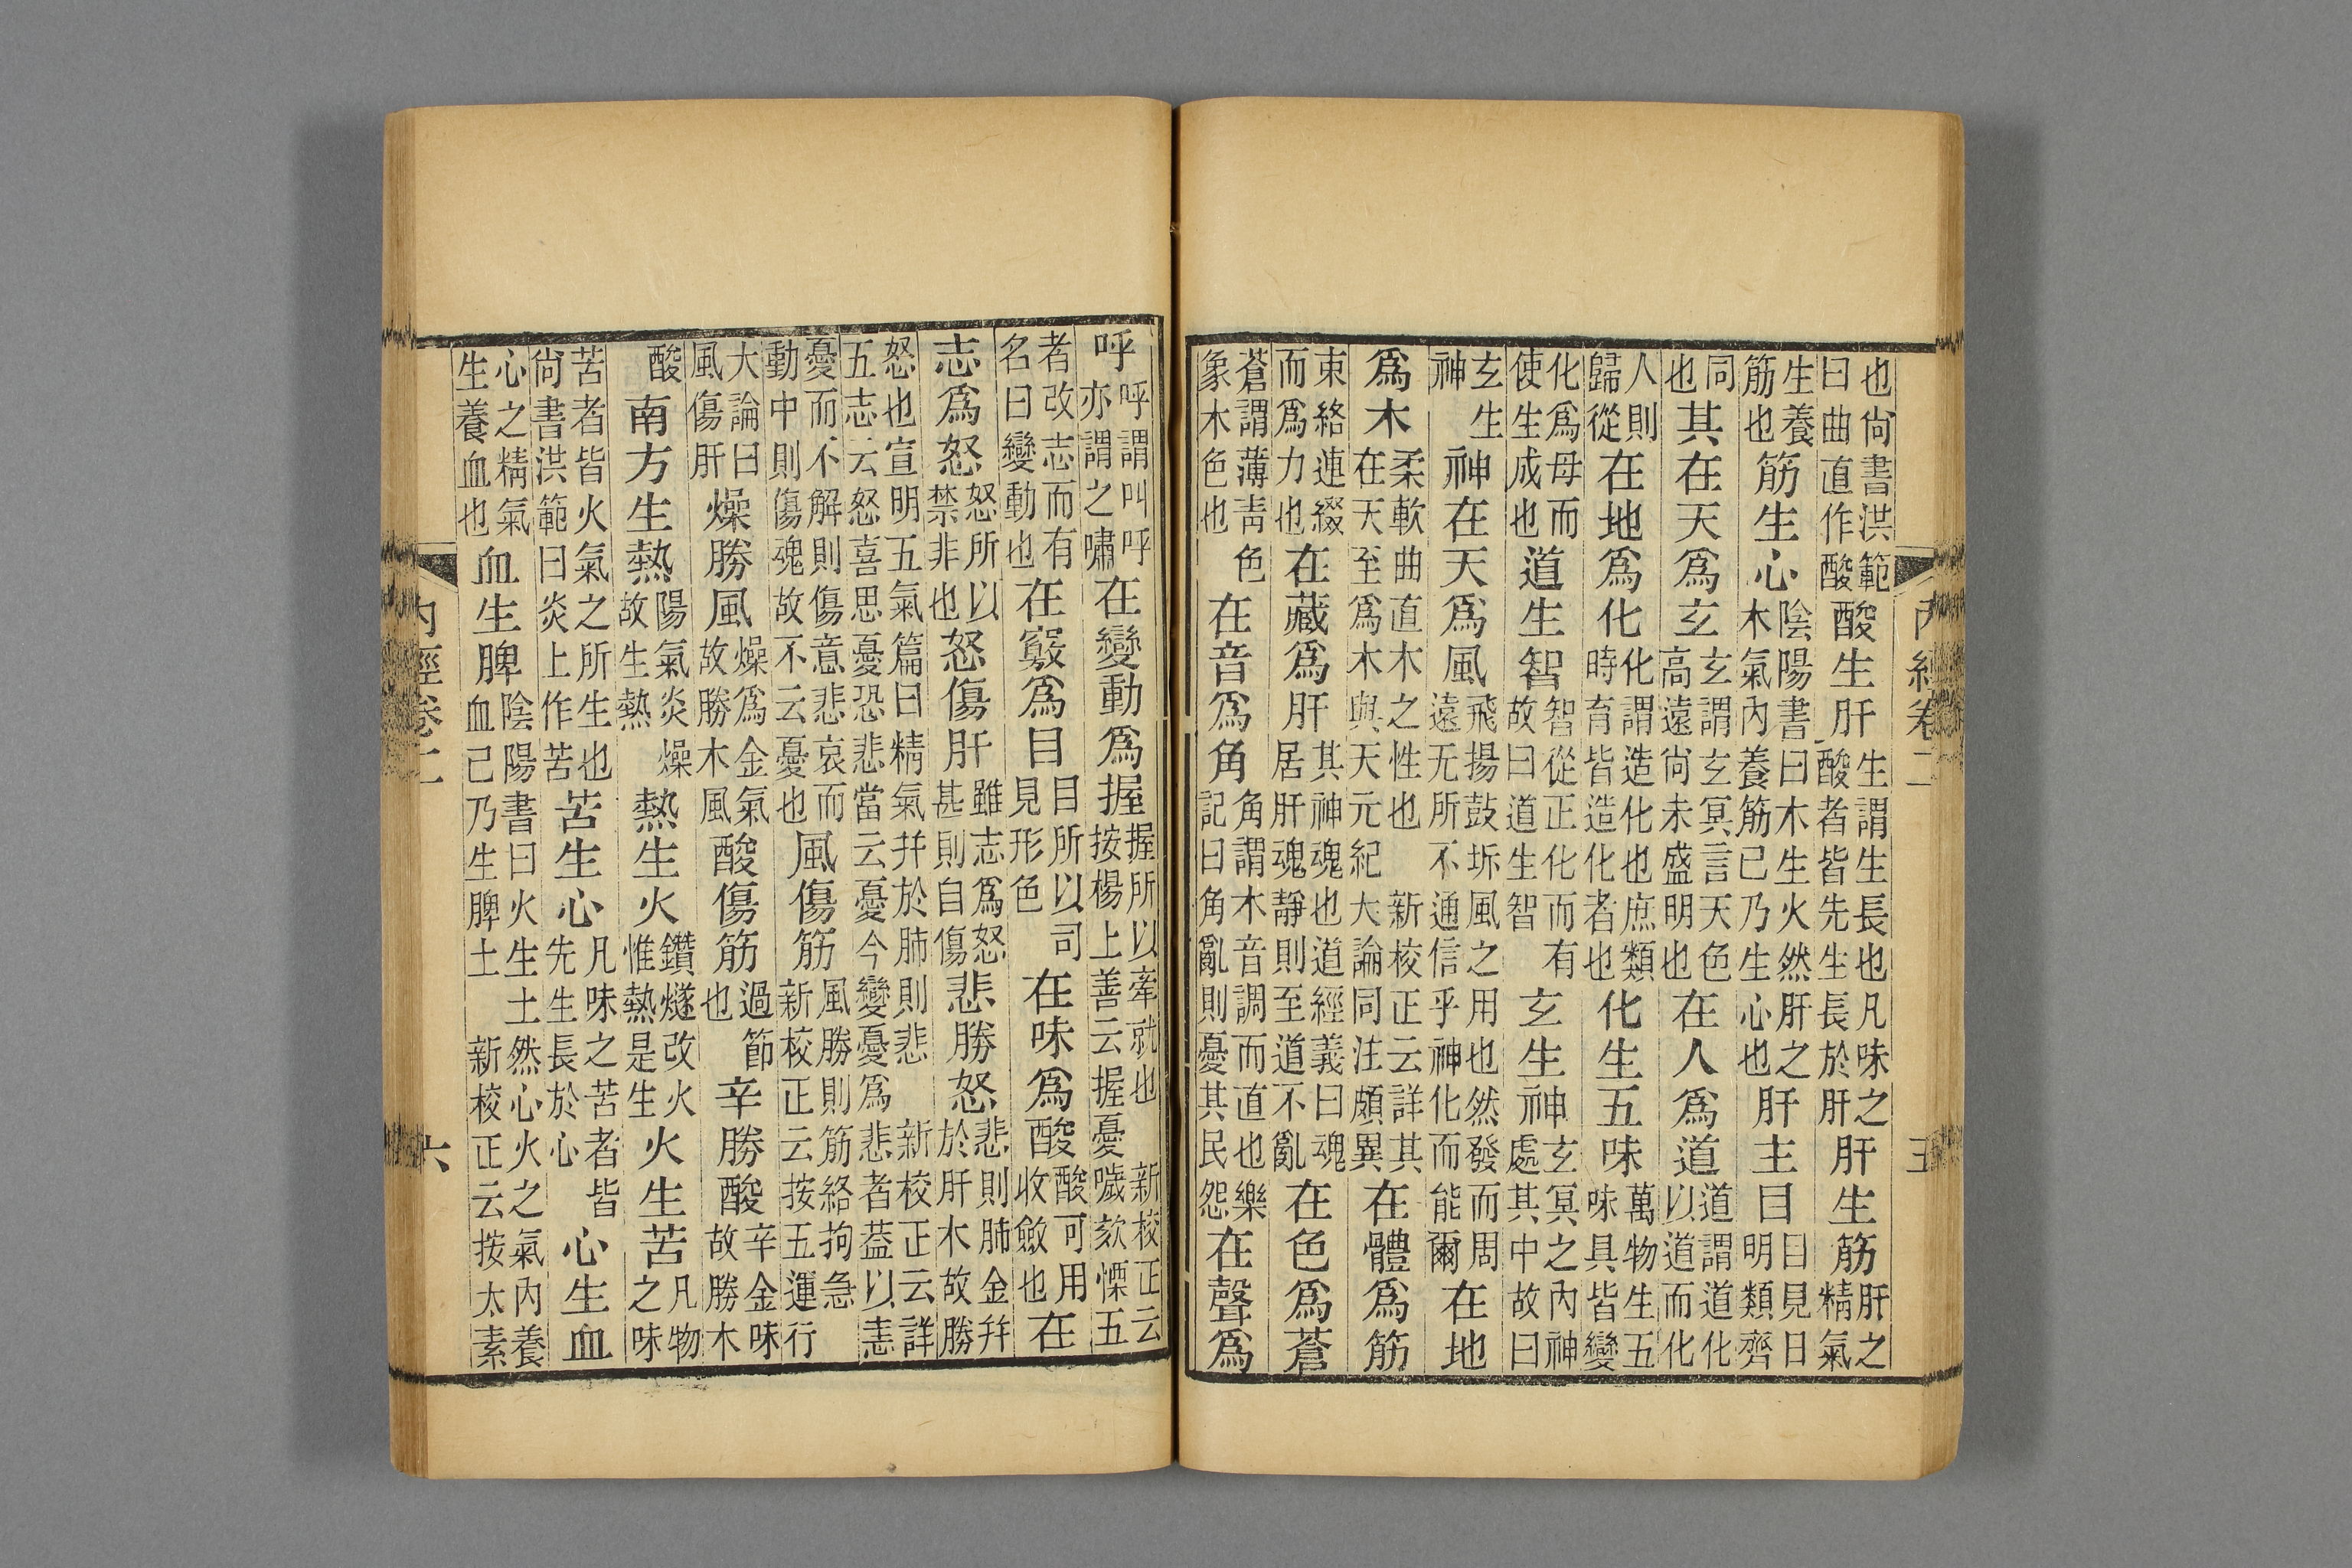 內經卷二 五
也尙書洪範曰曲直作酸酸生肝生謂生長也凡味之酸者皆先生長於肝肝生筋肝之精氣
生養筋也筋生心陰陽書曰木生火然肝之木氣內養筋已乃生心也肝主目目見日明類齊
同也其在天爲玄玄謂玄冥言天色高遠尙未盛明也在人爲道道謂道化以道而化
人則歸從在地爲化化謂造化也庶類時育皆造化者也化生五味萬物生五味具皆變
化爲母而使生成也道生智智從正化而有故曰道生智玄生神玄冥之內神處其中故曰
玄生神神在天爲風飛揚鼓坼風之用也然發而周遠无所不通信乎神化而能爾在地
爲木柔軟曲直木之性也新校正云詳其在天至爲木與天元紀大論同注頗異在體爲筋
束絡連綴而爲力也在藏爲肝其神魂也道經義曰魂居肝魂靜則至道不亂在色爲蒼
蒼謂薄靑色象木色也在音爲角角謂木音調而直也樂記曰角亂則憂其民怨在聲爲
呼呼謂叫呼亦謂之嘯在變動爲握握所以牽就也新校正云按楊上善云握憂噦欬慄五
者改志而有名曰變動也在竅爲目目所以司見形色在味爲酸酸可用收斂也在
志爲怒怒所以禁非也怒傷肝雖志爲怒甚則自傷悲勝怒悲則肺金幷於肝木故勝
怒也宣明五氣篇曰精氣幷於肺則悲新校正云詳五志云怒喜思憂恐悲當云憂今變憂爲悲者葢以恚
憂而不解則傷意悲哀而動中則傷魂故不云憂也風傷筋風勝則筋絡拘急新校正云按五運行
大論曰風傷肝燥勝風燥爲金氣故勝木風酸傷筋過節也辛勝酸辛金味故勝木
酸南方生熱陽氣炎燥故生熱熱生火鑽燧改火惟熱是生火生苦凡物之味
苦者皆火氣之所生也尙書洪範曰炎上作苦苦生心凡味之苦者皆先生長於心心生血
心之精氣生養血也血生脾陰陽書曰火生土然心火之氣內養血己乃生脾土新校正云按太素
內經卷二 六